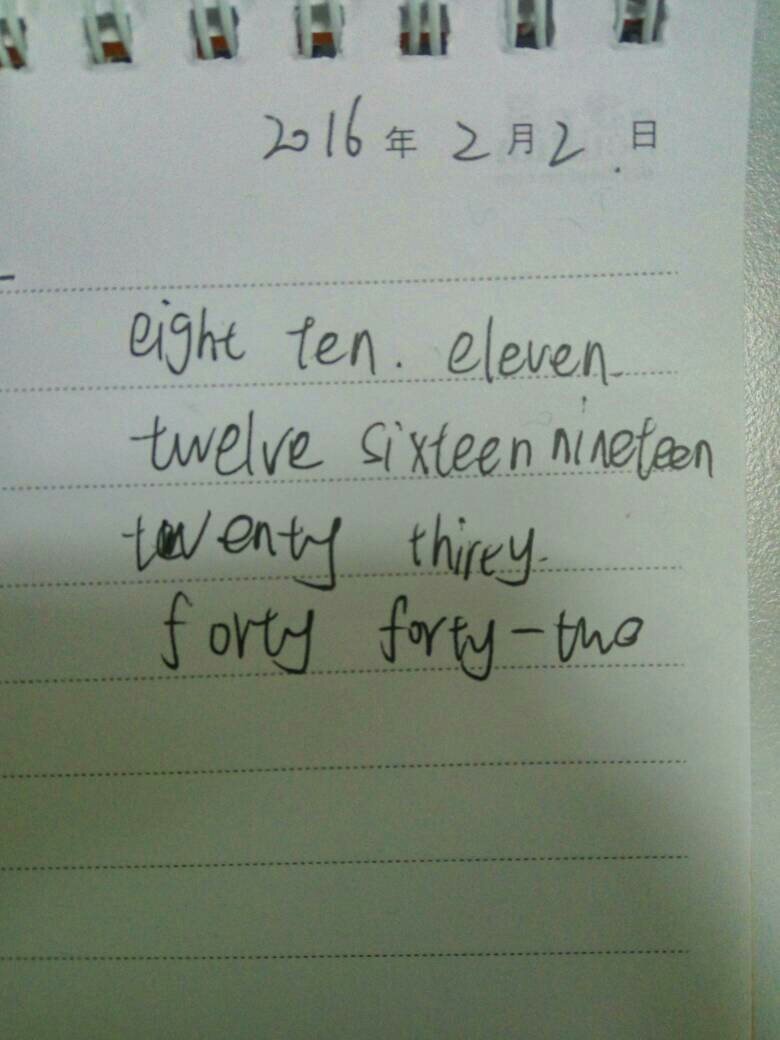 2016年2月2.日
eight ten. eleven.
twelve sixteen nineteen
twenty thirty.
forty forty-two